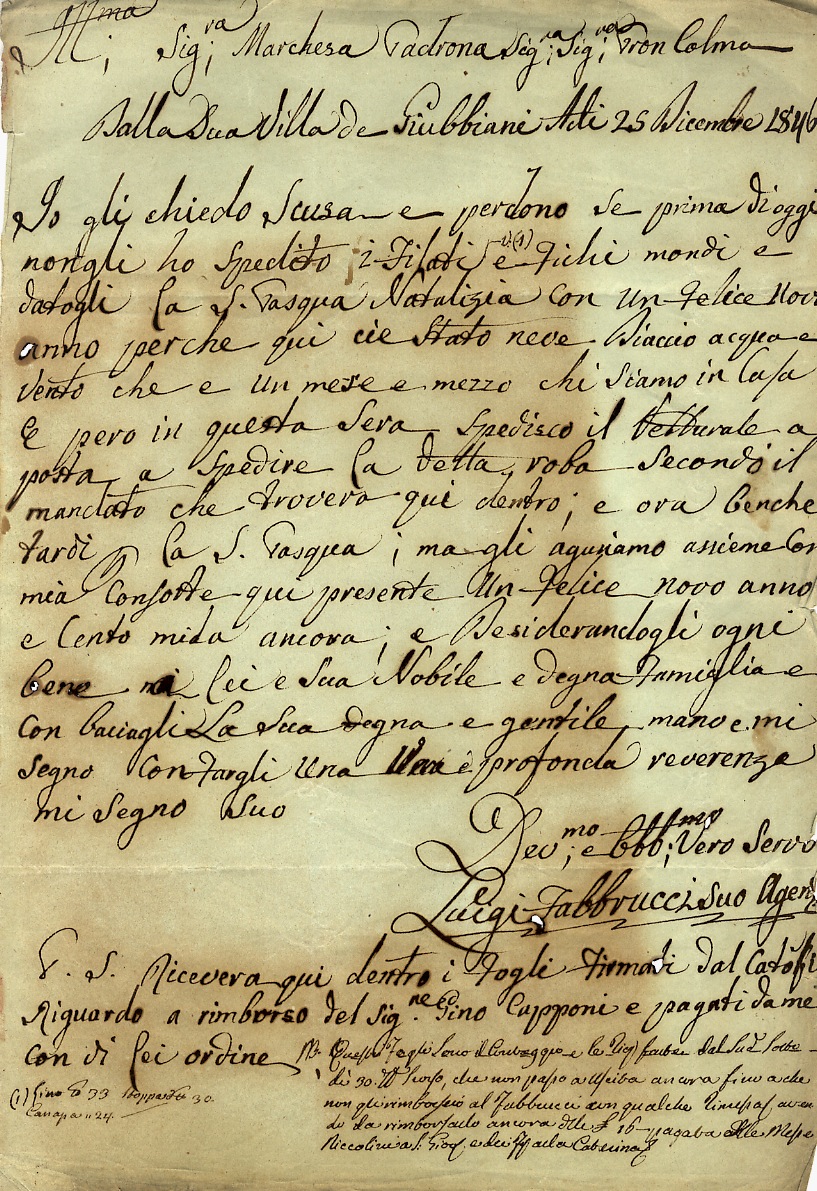 Ill:ma Sig:ra Marchesa Padrona Sig:ra Sig:ra Pron Colma
Dalla Sua Villa de Giubbiani Adi 25 Dicembre 1846
Io gli chiedo Scusa e perdono se prima di oggi
non gli ho Spedito i Filati (1) e Fichi mondi e
datogli la S. Pasqua Natalizia con Un Felice Novo
anno perche qui cie Stato neve Diaccio acqua e
Vento che e Un mese e mezzo chi Siamo in Casa
E pero in questa Sera Spedisco il Vetturale a
posta a Spedire la detta roba Secondo il
mandato che trovera qui dentro; e ora benche
tardi la S. Pasqua; ma gli aguriamo assieme Con
mia Consorte qui presente Un Felice novo anno
e Cento mila ancora; e Desiderandogli ogni
bene a lei e Sua Nobile e degna Famiglia e
Con baciagli La Sua degna e gentile mano e mi
Segno Con Fargli Una Vera e profonda reverenza
mi Segno Suo
Dev:mo e Obb:mo Vero Servo
Luigi Fabbrucci Suo Agen
P. S. Ricevera qui dentro i Fogli Firmati dal
Riguardo a rimborso del Sig:ne Gino Capponi e pagati da me
Con di lei ordine
Questi Fogli Sono il Conteggio e le
di 30. che non passo a Uscita ancora fino a che
non gli rimborserò al Fabbrucci con qualche rimessa
da rimborsarlo ancora delle £ 16 pagate alle Messe
Niccolini a S. Gio e di Caterina
(1) Lino 33 Stoppa 30.
Canapa " 24.